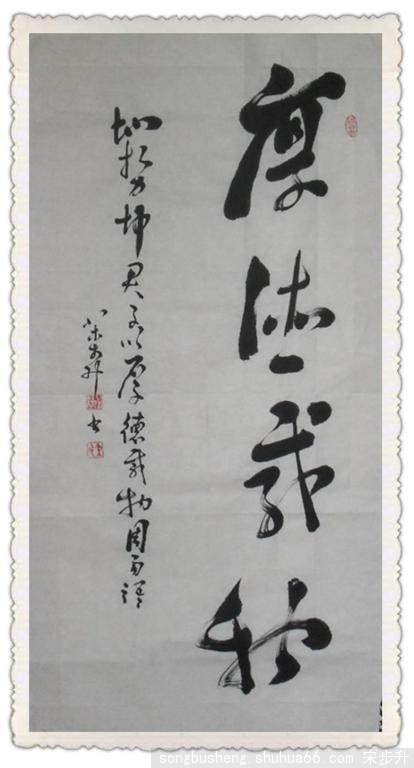 厚德载物
地势方坤君子以厚德载物周易语
宋步升
书
songbusheng.shuhua66.com 宋步升